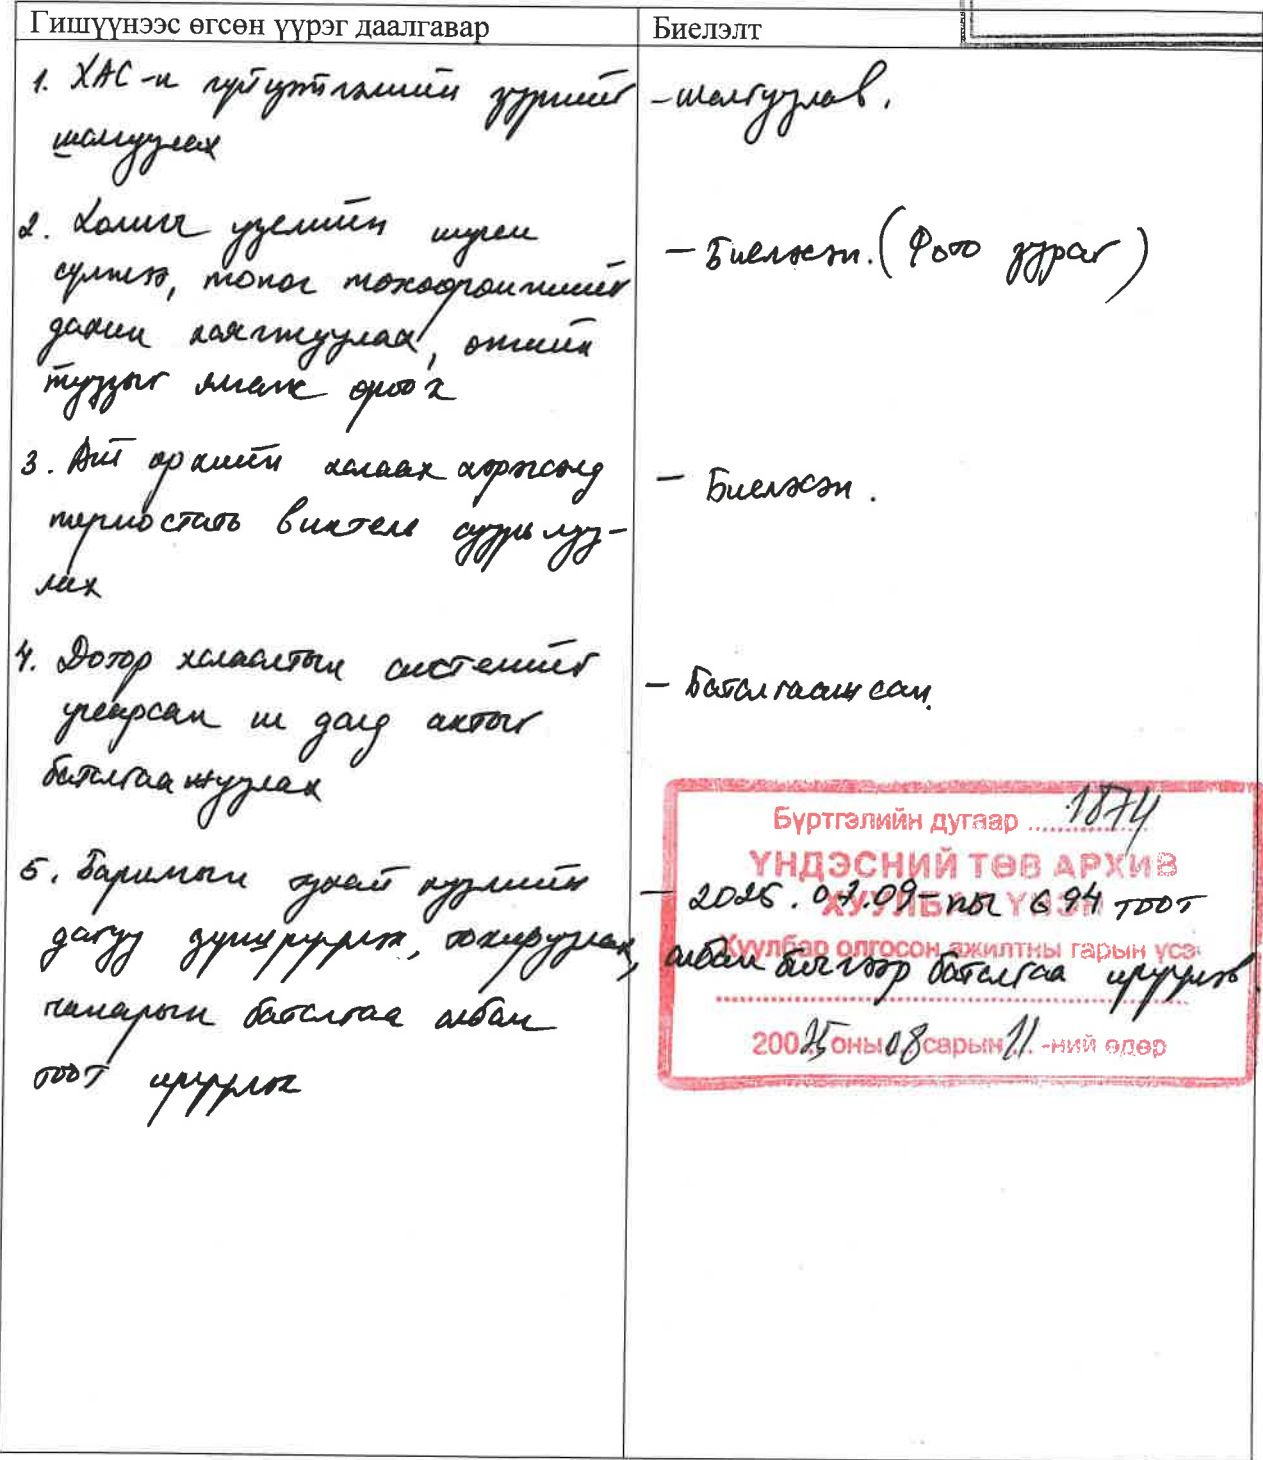 Гишүүнээс өгсөн үүрэг даалгавар
Биелэлт
1. ХАС-н гүйцэтгэлийн зургийг
шалгуулах
- шалгуулав.
2. Холигч узелийн шугам
сүлжээ, тоног төхөөрөмжийг
дахин хаягжуулах, өнгийн
туузыг ялгаж ороох
- Биелэсэн. (Фото зураг)
3. Айл өрхийн халаах хэрэгсэлд
термостать винтель суурьлуу-
лах
- Биелэсэн.
4. Дотор халаалтын системийг
угаарсан ил далд актыг
баталгаажуулах
- Баталгаажсан.
5. Барилгын тухай хуулийн
дагуу дүйцүүлж, тохируулах,
чанарын баталгаа албан
тоот ирүүлэх
- 2025.07.09-ны 694 тоот
албан бичгээр баталгаа ирүүлэв.
Бүртгэлийн дугаар 1874
ҮНДЭСНИЙ ТӨВ АРХИВ
ХУУЛБАР ҮНЭН
Хуулбар олгосон ажилтны гарын үсэг
200 25 оны 08 сарын 11 -ний өдөр